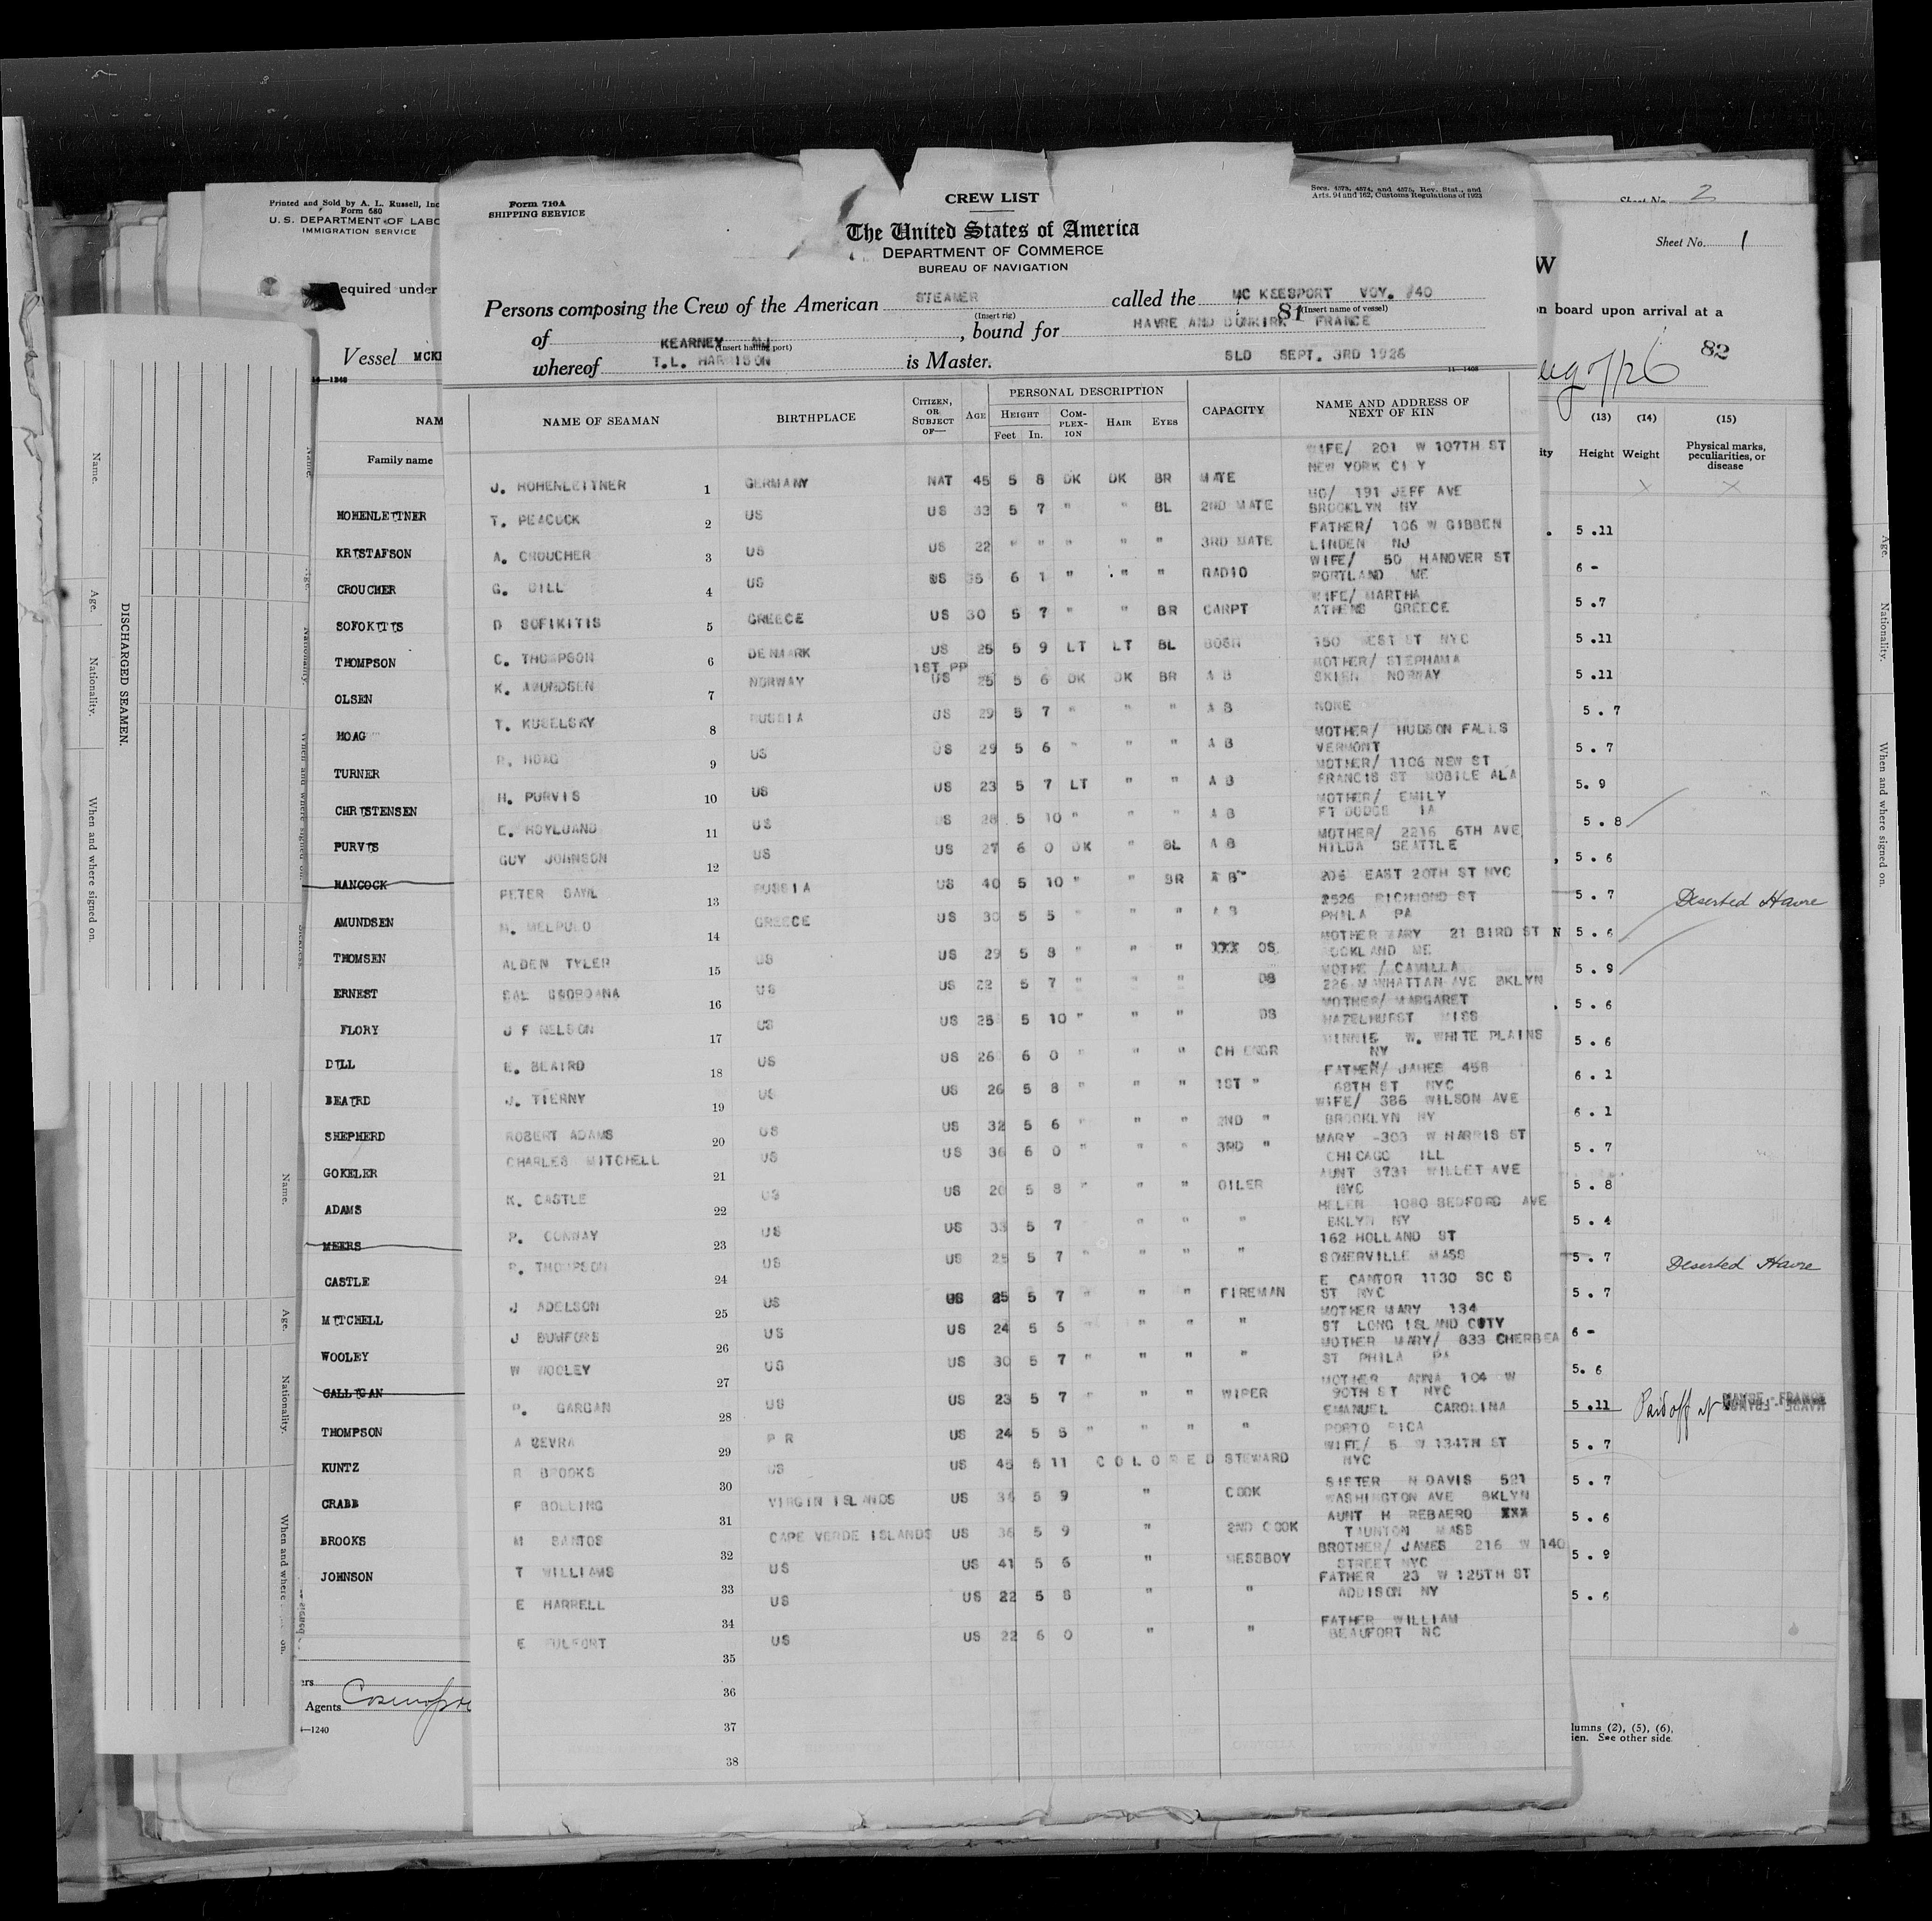 Form 710A
SHIPPING SERVICE
CREW LIST
Secs. 4573, 4574, and 4575, Rev. Stat., and
Arts. 94 and 162, Customs Regulations of 1923
The United States of America
DEPARTMENT OF COMMERCE
BUREAU OF NAVIGATION
Persons composing the Crew of the American STEAMER called the MC KEESPORT VOY. #40
(Insert rig) 81 (Insert name of vessel)
of KEARNEY NJ, bound for HAVRE AND DUNKIRK FRANCE
(Insert hailing port)
whereof T.L. HARRISON is Master. SLD SEPT. 3RD 1926
NAME OF SEAMAN BIRTHPLACE CITIZEN, OR SUBJECT OF— AGE PERSONAL DESCRIPTION CAPACITY NAME AND ADDRESS OF NEXT OF KIN
HEIGHT Feet In. COMPLEXION HAIR EYES
J. HOHENLEITNER 1 GERMANY NAT 45 5 8 DK DK BR MATE WIFE/ 201 W 107TH ST NEW YORK CI Y
T. PEACOCK 2 US US 33 5 7 " " BL 2ND MATE 191 JEFF AVE BROOKLYN NY
A. CROUCHER 3 US US 22 " " " " " 3RD MATE FATHER/ 106 W GIBBEN LINDEN NJ
G. DILL 4 US US 35 6 1 " " " RADIO WIFE/ 50 HANOVER ST PORTLAND ME
D SOFIKITIS 5 GREECE US 30 5 7 " " BR CARPT WIFE/ MARTHA ATHENS GREECE
C. THOMPSON 6 DENMARK US 25 5 9 LT LT BL BOSN 150 WEST ST NYC
K. AMUNDSEN 7 NORWAY 1ST PP US 25 5 6 DK DK BR A B MOTHER/ STEPHAMA SKIEN NORWAY
T. KUSELSKY 8 RUSSIA US 29 5 7 " " " A B NONE
R. HOAG 9 US US 29 5 6 " " " A B MOTHER/ HUDSON FALLS VERMONT
H. PURVIS 10 US US 23 5 7 LT " " A B MOTHER/ 1106 NEW ST FRANCIS ST MOBILE ALA
E. HOYLUAND 11 US US 28 5 10 " " " A B MOTHER/ EMILY FT DODGE IA
GUY JOHNSON 12 US US 27 6 0 DK " BL A B MOTHER/ 2216 6TH AVE HILDA SEATTLE
PETER 13 RUSSIA US 40 5 10 " " BR A B 206 EAST 20TH ST NYC
M. MELPULO 14 GREECE US 30 5 5 " " " A B 2526 RICHMOND ST PHILA PA
ALDEN TYLER 15 US US 29 5 8 " " " XXX OS MOTHER MARY 21 BIRD ST N ROCKLAND ME
SAL 16 US US 22 5 7 " " " OS MOTHE / CAMILLA 226 MANHATTAN AVE BKLYN
J F NELSON 17 US US 25 5 10 " " " OS MOTHER/ MARGARET HAZELHURST MISS
E. BEAIRD 18 US US 26 6 0 " " " CH ENGR MINNIE W. WHITE PLAINS NY
J. TIERNY 19 US US 26 5 8 " " " 1ST " FATHER/ JAMES 458 68TH ST NYC
ROBERT ADAMS 20 US US 32 5 6 " " " 2ND " WIFE/ 386 WILSON AVE BROOKLYN NY
CHARLES MITCHELL 21 US US 36 6 0 " " " 3RD " MARY -303 W HARRIS ST CHICAGO ILL
K. CASTLE 22 US US 20 5 8 " " " OILER AUNT 3731 WILLET AVE NYC
P. CONWAY 23 US US 33 5 7 " " " HELEN 1080 BEDFORD AVE BKLYN NY
P. THOMPSON 24 US US 25 5 7 " " " " 162 HOLLAND ST SOMERVILLE MASS
J ADELSON 25 US US 25 5 7 " " " FIREMAN E CANTOR 1130 SC S ST NYC
J BUMFORS 26 US US 24 5 5 " " " MOTHER MARY 134 ST LONG ISLAND CITY
W WOOLEY 27 US US 30 5 7 " " " " MOTHER MARY/ 833 CHERBEA ST PHILA PA
P. GARGAN 28 US US 23 5 7 " " " WIPER MOTHER ANNA 104 W 90TH ST NYC
A CEVRA 29 P R US 24 5 5 " " " " EMANUEL CAROLINA PORTO RICA
R BROOKS 30 US US 45 5 11 COLORED STEWARD WIFE/ 5 W 134TH ST NYC
F BOLLING 31 VIRGIN ISLANDS US 36 5 9 " COOK SISTER N DAVIS 521 WASHINGTON AVE BKLYN
M SANTOS 32 CAPE VERDE ISLANDS US 36 5 9 " 2ND COOK AUNT H REBAERO XXX TAUNTON MASS
T WILLIAMS 33 US US 41 5 6 " MESSBOY BROTHER/ JAMES 216 W 140 STREET NYC
E HARRELL 34 US US 22 5 8 " " FATHER 23 W 125TH ST ADDISON NY
E FULFORT 35 US US 22 6 0 " " FATHER WILLIAM BEAUFORT NC
36
37
38
Printed and Sold by A. L. Russell, Inc
Form 680
U. S. DEPARTMENT OF LABO
IMMIGRATION SERVICE
equired under
Vessel MCKE
NAM
Family name
HOHENLEITNER
KRISTAFSON
CROUCHER
SOFOKITIS
THOMPSON
OLSEN
HOAG
TURNER
CHRISTENSEN
PURVIS
HANCOCK
AMUNDSEN
THOMSEN
ERNEST
FLORY
DILL
BEAIRD
SHEPHERD
GOKELER
ADAMS
MEERS
CASTLE
MITCHELL
WOOLEY
CALLIGAN
THOMPSON
KUNTZ
CRABB
BROOKS
JOHNSON
Agents
—1240
Sheet No. 2
Sheet No. 1
W
n board upon arrival at a
82
(13) (14) (15)
Height Weight Physical marks, peculiarities, or disease
5 .11
6 -
5 .7
5 .11
5 .11
5 . 7
5 . 7
5. 9
5 . 8
5 . 6
5 . 7 Deserted Havre
5 . 6
5 . 9
5 . 6
5 . 6
6 . 1
6 . 1
5 . 7
5 . 8
5 . 4
5 . 7 Deserted Havre
5 . 7
6 -
5. 6
5 .11 Paid off at HAVRE - FRANCE
5 . 7
5 . 7
5 . 6
5 . 9
5 . 6
lumns (2), (5), (6),
ien. See other side.
DISCHARGED SEAMEN.
Name. Age. Nationality. When and where signed on.
Name. Age. Nationality. When and where on.
Age. Nationality. When and where signed on.